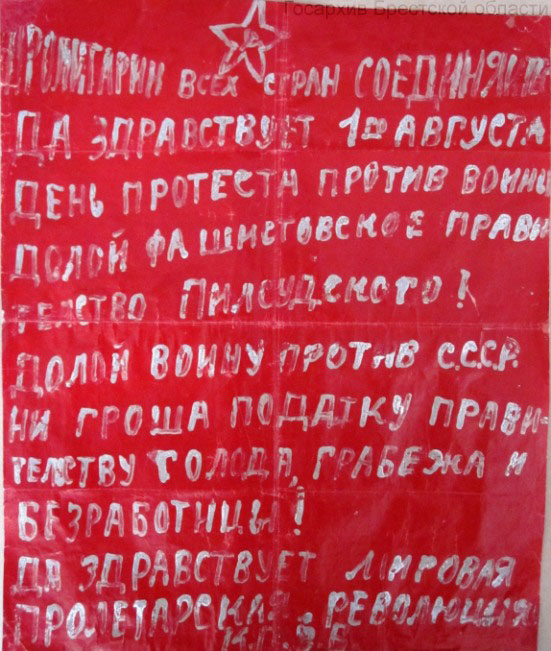 Госархив Брестской области
ПРОЛИТАРИИ ВСЕХ СТРАН СОЕДИНЯЙТЕСЬ
ДА ЗДРАВСТВУЕТ 1ое АВГУСТА
ДЕНЬ ПРОТЕСТА ПРОТИВ ВОИНЫ
ДОЛОЙ ФАШИСТОВСКОЕ ПРАВИ
ТЕЛСТВО ПИЛСУДСКОГО!
ДОЛОЙ ВОИНУ ПРОТИВ С.С.С.Р.
НИ ГРОША ПОДАТКУ ПРАВИ-
ТЕЛСТВУ ГОЛОДА, ГРАБЕЖА И
БЕЗРАБОТИЦЫ!
ДА ЗДРАВСТВУЕТ МИРОВАЯ
ПРОЛЕТАРСКАЯ РЕВОЛЮЦИЯ